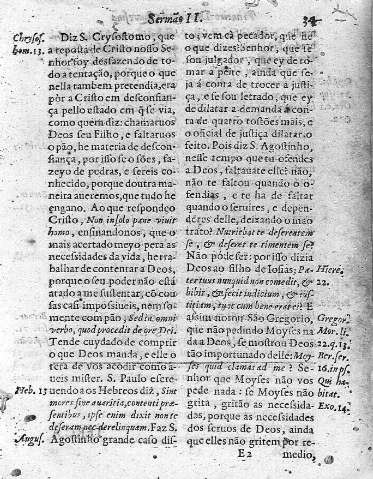 Sermão II.
34
Chrysos.
hom. 13.
Diz S. Crysostomo, que
a reposta de Cristo nosso Se-
nhor foy desfazendo de to-
do a tentação, porque o que
nella tambem pretendia, era
pòr a Cristo em desconfian-
ça pello estado em q̃ se via,
como quem diz: chamaruos
Deos seu Filho, e faltaruos
o pão, he materia de descon-
fiança, por isso se o sões, fa-
zeyo de pedras, e sereis co-
nhecido, porque doutra ma-
neira
engano. Ao que respondeo
Cristo, Non in solo pane viuit
homo, ensinandonos, que o
mais acertado meyo pera as
necessidades da vida, he tra-
balhar de contentar a Deos,
porque o seu poder não está
atado a nos sustentar, cõ cou-
sas casi impossiueis, nem so-
mente com pão, Sed in omni
verbo, quod procedit de ore Dei.
Tende cuydado de comprir
o que Deos manda, e elle o
tera de vos acodir como a-
ueis mister. S. Paulo escre-
Heb. 13
uendo aos Hebreos diz, Sint
mores sine auaritia, contenti præ-
sentibus, ipse enim dixit non te
deseram nec derelinquam. Faz S.
Augus.
Agostinho grande caso dis-
to; vem cà pecador, que he
o que dizes: Senhor, que te
son julgador, que ey de to-
mar a peita, ainda que se-
ja á conta de trocer a justi-
ça, e se sou letrado, que ey
de dilatar a demanda á con-
ta de quatro tostões mais, e
o oficial de justiça dilatar o
feito. Pois diz S. Agostinho,
nesse tempo que tu ofendes
a Deos, faltauate elle? não,
não te faltou quando o o-
fendias, e te ha de faltar
quando o seruires, e depen-
deres delle, deixando o mao
trato?
se, & deseret te timentem se?
Não póde ser: por isso dizia
Deos ao filho de Iosias; Pa-
Hiere.
ter tuus nunquid non comedit, &
22.
bibit, & fecit iudicium, & ius-
titiam, tunc cum bene erat ei? E
assim notou São Gregorio,
Gregor.
que não pedindo Moyses na-
Mor. li.
da a Deos, se mostrou Deos
22. q. 13.
tão importunado delle: Moy-
Ber. ser.
ses quid clamas ad me? Se-
16. in ps.
nhor que Moyses não vos
Qui ha-
pede nada: se Moyses não
bitat.
grita, gritão as necessida-
Exo. 14.
des, porque as necessidades
dos seruos de Deos, ainda
que elles não gritem por re-
E 2
medio,